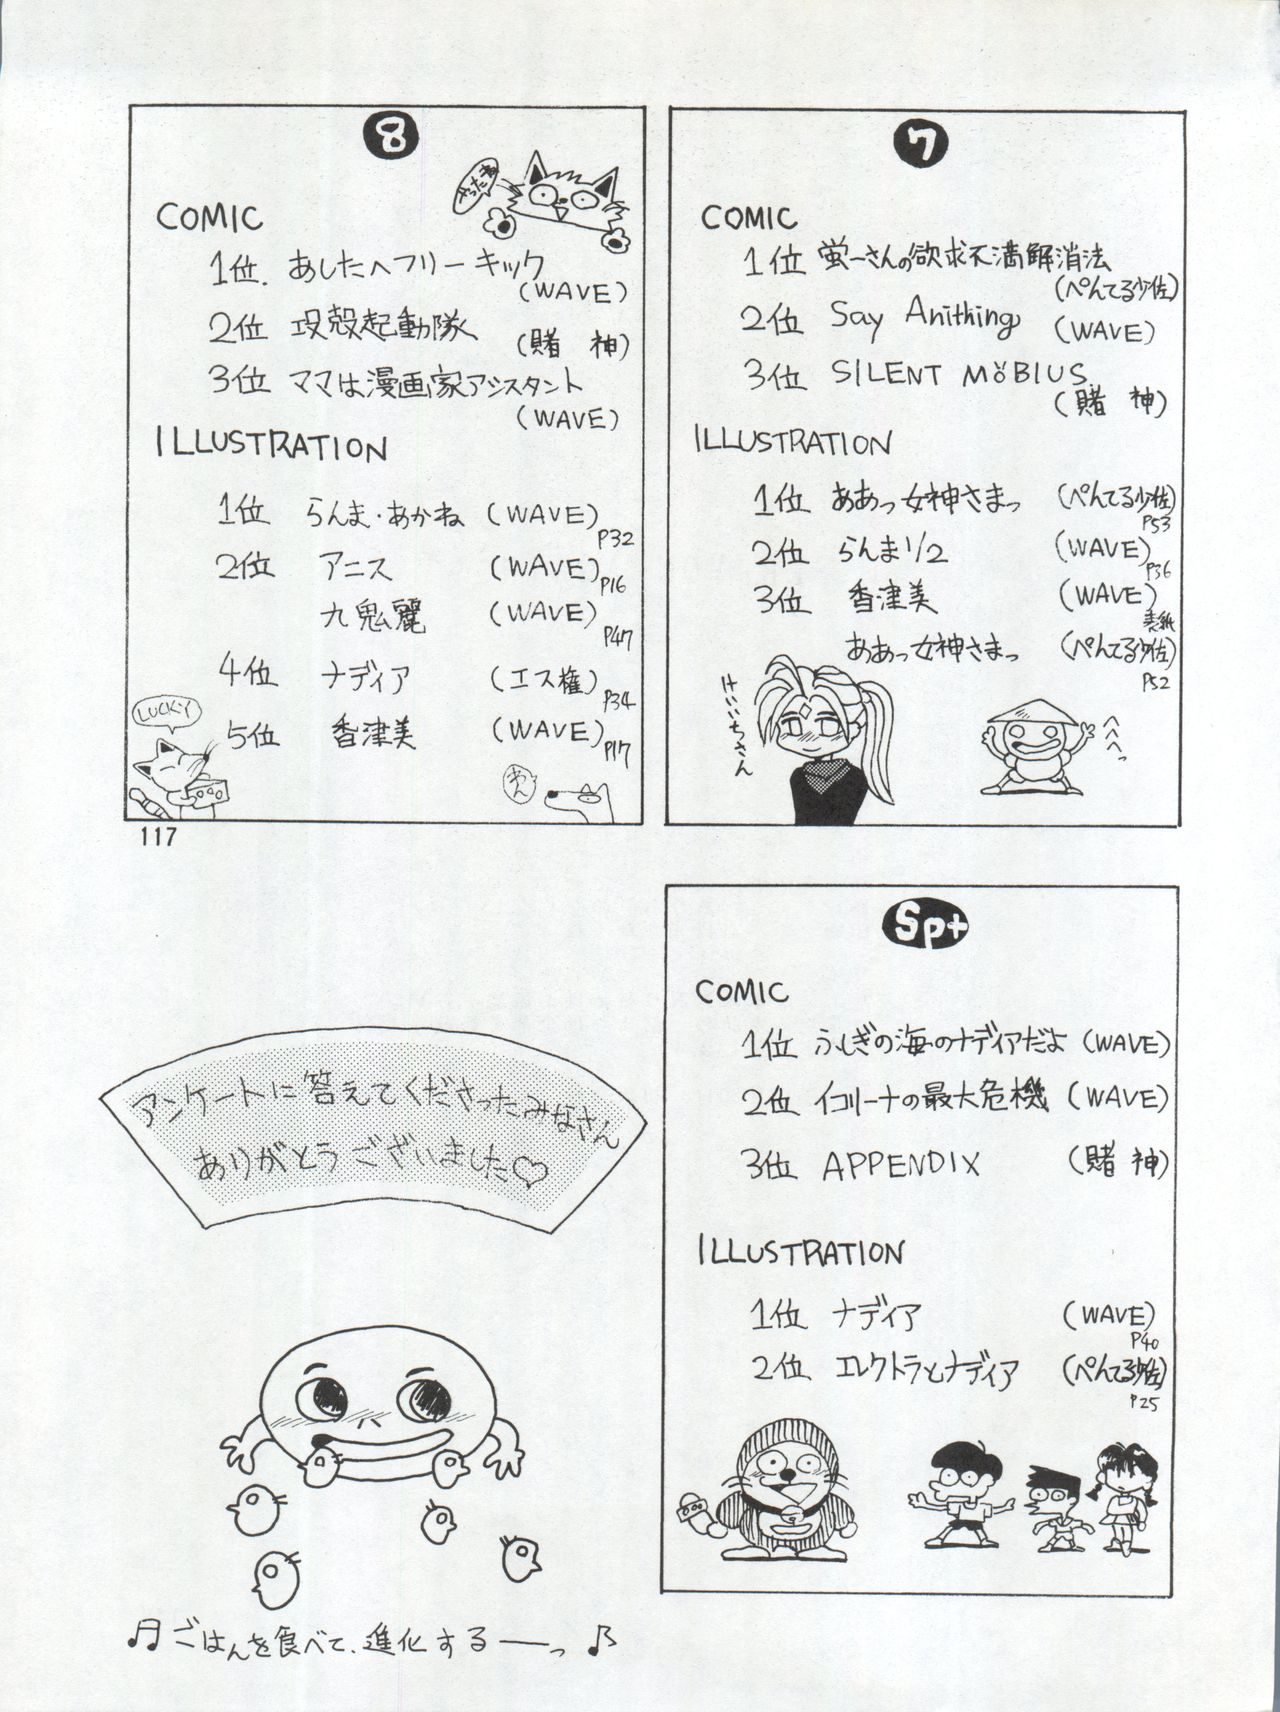 8
やったね
COMIC
1位. あしたへフリーキック
(WAVE)
2位 攻殻起動隊
(賭 神)
3位 ママは漫画家アシスタント
(WAVE)
ILLUSTRATION
1位 らんま・あかね (WAVE)
P32
2位 アニス (WAVE)
P16
九鬼麗 (WAVE)
P47
4位 ナディア (エス権)
P34
LUCKY
5位 香津美 (WAVE)
P17
わん
117
7
COMIC
1位 蛍一さんの欲求不満解消法
(ぺんてる少佐)
2位 Say Anithing (WAVE)
3位 SILENT MÖBIUS
(賭 神)
ILLUSTRATION
1位 ああっ女神さまっ (ぺんてる少佐)
P53
2位 らんま1/2 (WAVE)
P36
3位 香津美 (WAVE)
表紙
ああっ女神さまっ (ぺんてる少佐)
P52
けいいちさん
へへへっ
Sp+
COMIC
1位 ふしぎの海のナディアだよ (WAVE)
2位 イコリーナの最大危機 (WAVE)
3位 APPENDIX (賭 神)
ILLUSTRATION
1位 ナディア (WAVE)
P40
2位 エレクトラとナディア (ぺんてる少佐)
P25
アンケートに答えてくださったみなさん
ありがとうございました♡
♫ ごはんを食べて、進化するーっ ♪